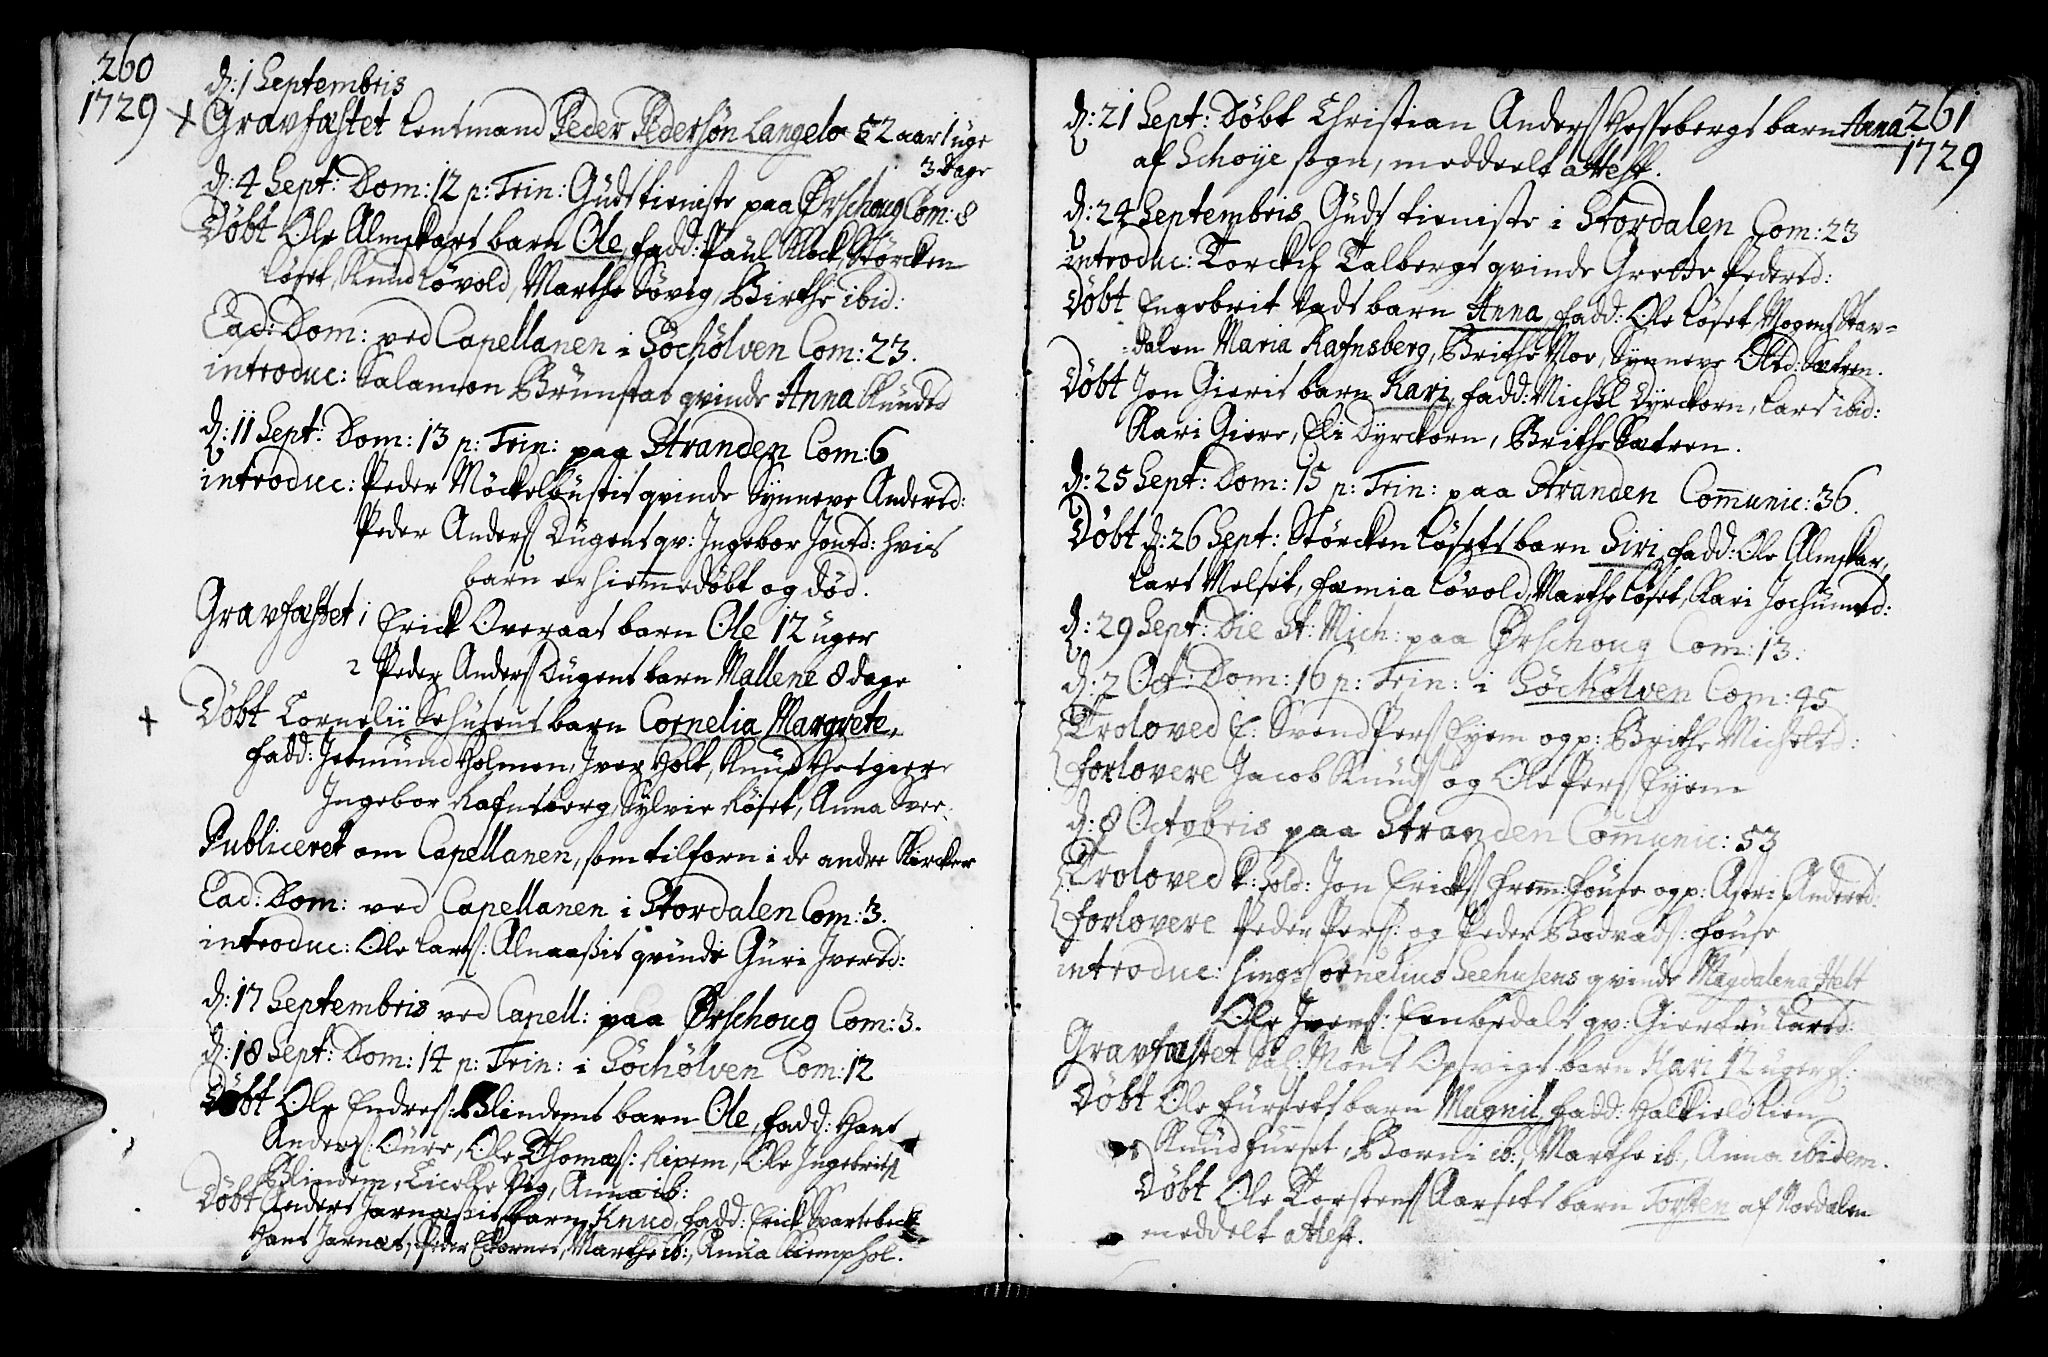 260
1729
d: 1 Septembris
+ Gravfæstet Lensmand Peder Pedersøn Langelo 52 aar 1 uge
3 Dage
d: 4 Sept: Dom: 12 p: Trin: Guds tieniste paa Ørschoug Com: 8
Døbt Ole Almskars barn Ole, fadd: Paul Klock, Størcken
Løset, Knud Løvold, Marthe Søvig, Birthe ibid:
Ead: Dom: ved Capellanen i Søchølven Com: 23.
introduc: Salamon Brunstas qvinde Anna Knudsd
d: 11 Sept: Dom: 13 p: Trin: paa Stranden Com: 6
introduc: Peder Møckelbustis qvinde Synneve Andersd:
Peder Anders Dugens qv: Ingebor Jonsd: hvis
barn er hiemmedøbt og død.
Gravfæstet 1 Erick Overaas barn Ole 12 uger
2 Peder Anders Dugens barn Mallene 8 dage
+ Døbt Cornelii Sehusens barn Cornelia Margrete,
fadd: Jetmund Holmen, Iver Holt, Knud
Ingebor Rafnsberg, Sylvie Røset, Anna
Publiceret om Capellanen, som tilforn i de andre Kircker
Ead: Dom: ved Capellanen i Stordalen Com: 3.
introduc: Ole Lars: Alnaaßis qvinde Guri Iversd:
d: 17 Septembris ved Capell: paa Ørschoug Com: 3.
d: 18 Sept: Dom: 14 p: Trin: i Søchølven Com: 12
Døbt Ole Endres: Blindems barn Ole, fadd: Hans
Anders: Oure, Ole Thomæs: Ripem, Ole Ingebrits
Blindem, Vig, Anna ib:
Døbt Anders Jarnæßis barn Knud, fadd: Erick Svartebeck
Hans Jarnæs, Peder Eckornes, Marthe ib:, Anna Riemphol.
261
1729
d: 21 Sept: Døbt Christian Anders Hessebergs barn Anna
af Schoye sogn, meddeelt attest.
d: 24 Septembris Guds tieniste i Stordalen Com: 23
introduc: Torckil Talbergs qvinde Grethe Pedersd:
Døbt Engebrit Vads barn Anna, fadd: Ole Løset, Mogens Stor=
=dalen Maria Rafnsberg, Brithe Moe, Synneve Olsd: Sætren.
Døbt Jon Gieris barn Kari, fadd: Michel Dyrckorn, Lars ibid:
Kari Giere, Eli Dyrckorn, Brithe Sætren.
d: 25 Sept: Dom: 15 p: Trin: paa Stranden Communic: 36.
Døbt d: 26 Sept: Størcken Løsets barn Siri, fadd: Ole Almskar,
Lars Melset, Famia Løvold, Marthe Løset, Kari Jochumsd:
d: 29 Sept: Die St: Mich: paa Ørschoug Com: 13.
d: 2 Oct: Dom: 16 p: Trin: i Søchølven Com: 45
Troloved E: Svend Pers Eyem og p: Brithe Michelsd:
Forlovere Jacob Knuds og Ole Pers Eyem
d: 8 Octobris paa Stranden Communic: 53
Troloved E: Sold: Jon Ericks Fremfouse og p: Astri Andersd:
Forlovere Peder Pers: og Peder Bodvads: Fouse
introduc: Cornelius Seehusens qvinde Magdalena Helt
Ole Ivers: qv: Giertru Larsd:
Gravfæstet Mons Opsvigs barn Kari 12 uger
Døbt Ole Fursets barn Magnil, fadd: Halkield Lien
Knud Furset, Borni ib:, Marthe ib:, Anna ibidem.
Døbt Ole Torstens Aarsets barn Torsten af Nordalen
meddelt attest.